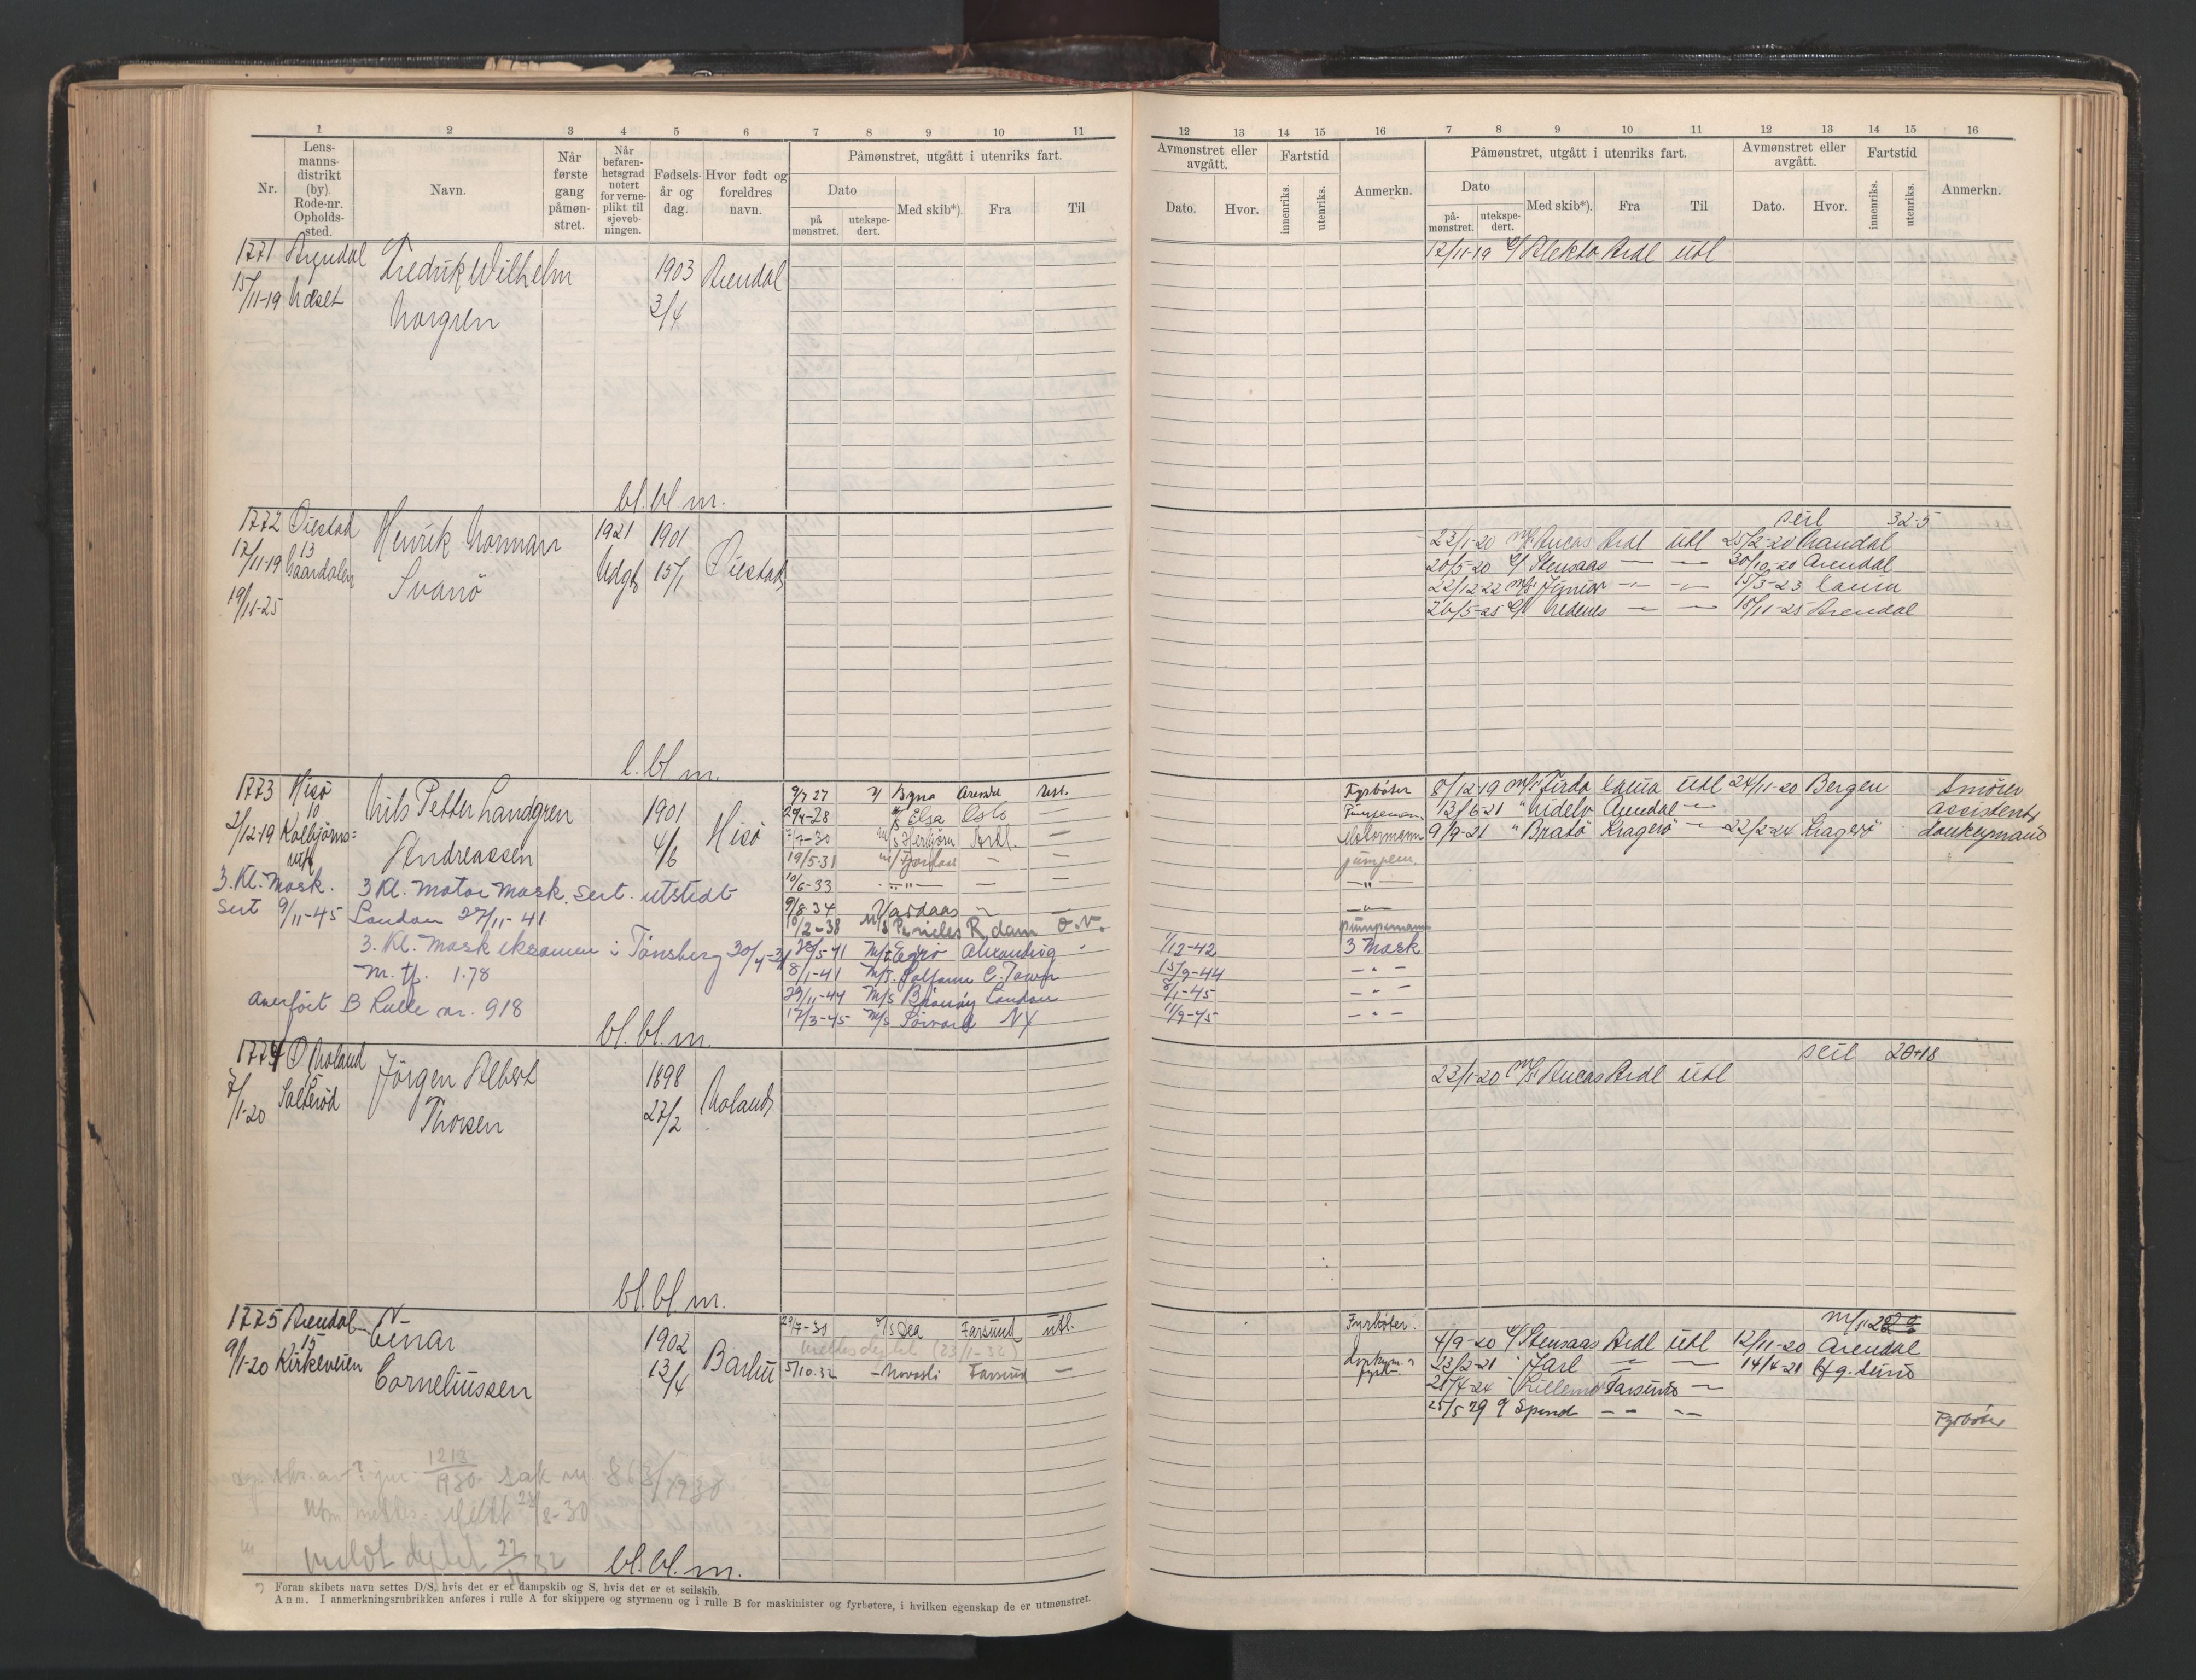 1 2 3 4 5 6 7 8 9 10 11
Nr.
Lens-
manns-
distrikt
(by).
Rode-nr.
Opholds-
sted.
Navn.
Når
første
gang
påmøn-
stret.
Når
befaren-
hetsgrad
notert
for verne-
plikt til
sjøveb-
ningen.
Fødsels-
år og
dag.
Hvor født og
foreldres
navn.
Påmønstret, utgått i utenriks fart.
Dato
på
mønstret.
utekspe-
dert.
Med skib*).
Fra
Til
1771 Arendal Fredrik Wilhelm 1903 Arendal
15/11-19 Norgren 3/4
bl. bl. m.
1772 Øiestad Henrik Norman 1921 1901
17/11-19 13 Svanö Udgt 15/1 Øiestad
19/11-25
l. bl. m.
1773 Hisö Nils Petter Landgren 1901 Hisö
10 Andreassen 4/6
2/12-19 Kolbjörns=
vik
3. Kl. Mask. 3 Kl. Motor Mask. Sert. utstedt
Sert 9/11-45 London 27/11-41
3. Kl. Mask eksamen i Tönsberg 30/4-31
M. tf. 1.78
Overført B Rulle nr. 918
bl. bl. m.
9/7 27 Bryna Arendal utl.
29/4-28 Elsa Oslo —
7/7-30 M/S Herbjörn Ardl. —
19/5-31 Fjordaas — —
10/6-33 — " — — —
9/8-34 Vardaas — —
10/2-38 M/S Pericles R.dam O.V.
28/5-41 M/T Egerö Alexandria
8/1-41 M/T. Solfonn C. Town
29/11-44 M/S Brönnöy London
17/3-45 M/S Torvard NY
1774 Ø. Moland Jörgen Albert 1898 Moland
7/1-20 15 Thorsen 27/2
Salteröd
bl. bl. m.
1775 Arendal Einar 1902 Barbu
15 Corneliussen 13/4
9/1-20 Kirkeveien
29/7-30 Farsund utl.
(23/1-32)
5/10.32 Farsund —
1213
1930 sak nr. 868/1930
23/8-30
meldt 22/11 32
bl. bl. m.
*) Foran skibets navn settes D/S, hvis det er et dampskib og S, hvis det er et seilskib.
Anm. I anmerkningsrubrikken anføres i rulle A for skippere og styrmenn og i rulle B for maskinister og fyrbøtere, i hvilken egenskap de er utmønstret.
12 13 14 15 16 7 8 9 10 11 12 13 14 15 16
Avmønstret eller
avgått.
Dato.
Hvor.
Fartstid
innenriks.
utenriks.
Anmerkn.
Påmønstret, utgått i utenriks fart.
Dato
på-
mønstret.
utekspe-
dert.
Med skib*).
Fra
Til
Avmønstret eller
avgått.
Dato.
Hvor.
Fartstid
innenriks.
utenriks.
Anmerkn.
12/11-19 Alekto Ardl Utl
seil 32-5
23/1-20 M/S Aucas Ardl Utl 25/2-20 Mandal
20/5-20 Stensaas — — 30/10-20 Arendal
22/12-22 M/S Junior — — 15/3-23 Lauia
26/5-25 Nedenes — — 18/11-25 Arendal
Fyrböter 8/12-19 M/S Firda Lauia Utl 24/11-20 Bergen Smörer
Pumpeman 13/6-21 " Nidelv Arendal — assistent
Motormann 9/9-21 " Bratö Kragerö — 22/2-24 Kragerö donkeymand
pumpem.
— " —
— " —
pumpemann
1/12-42 3 Mask
15/9-44 — " —
8/1-45 — " —
11/9-45 — " —
seil 20+18
23/1-20 M/S Aucas Ardl Utl
Fyrböter.
4/9-20 Stensaas Ardl Utl 12/11-20 Arendal
23/2-21 Jarl — — 14/4-21
21/4-24 Farsund —
25/5 29 Spind — — Fyrböter